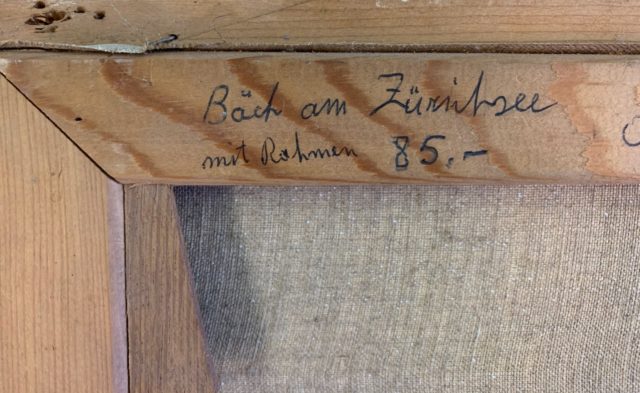 Bäch am Zürichsee
mit Rahmen 85.-